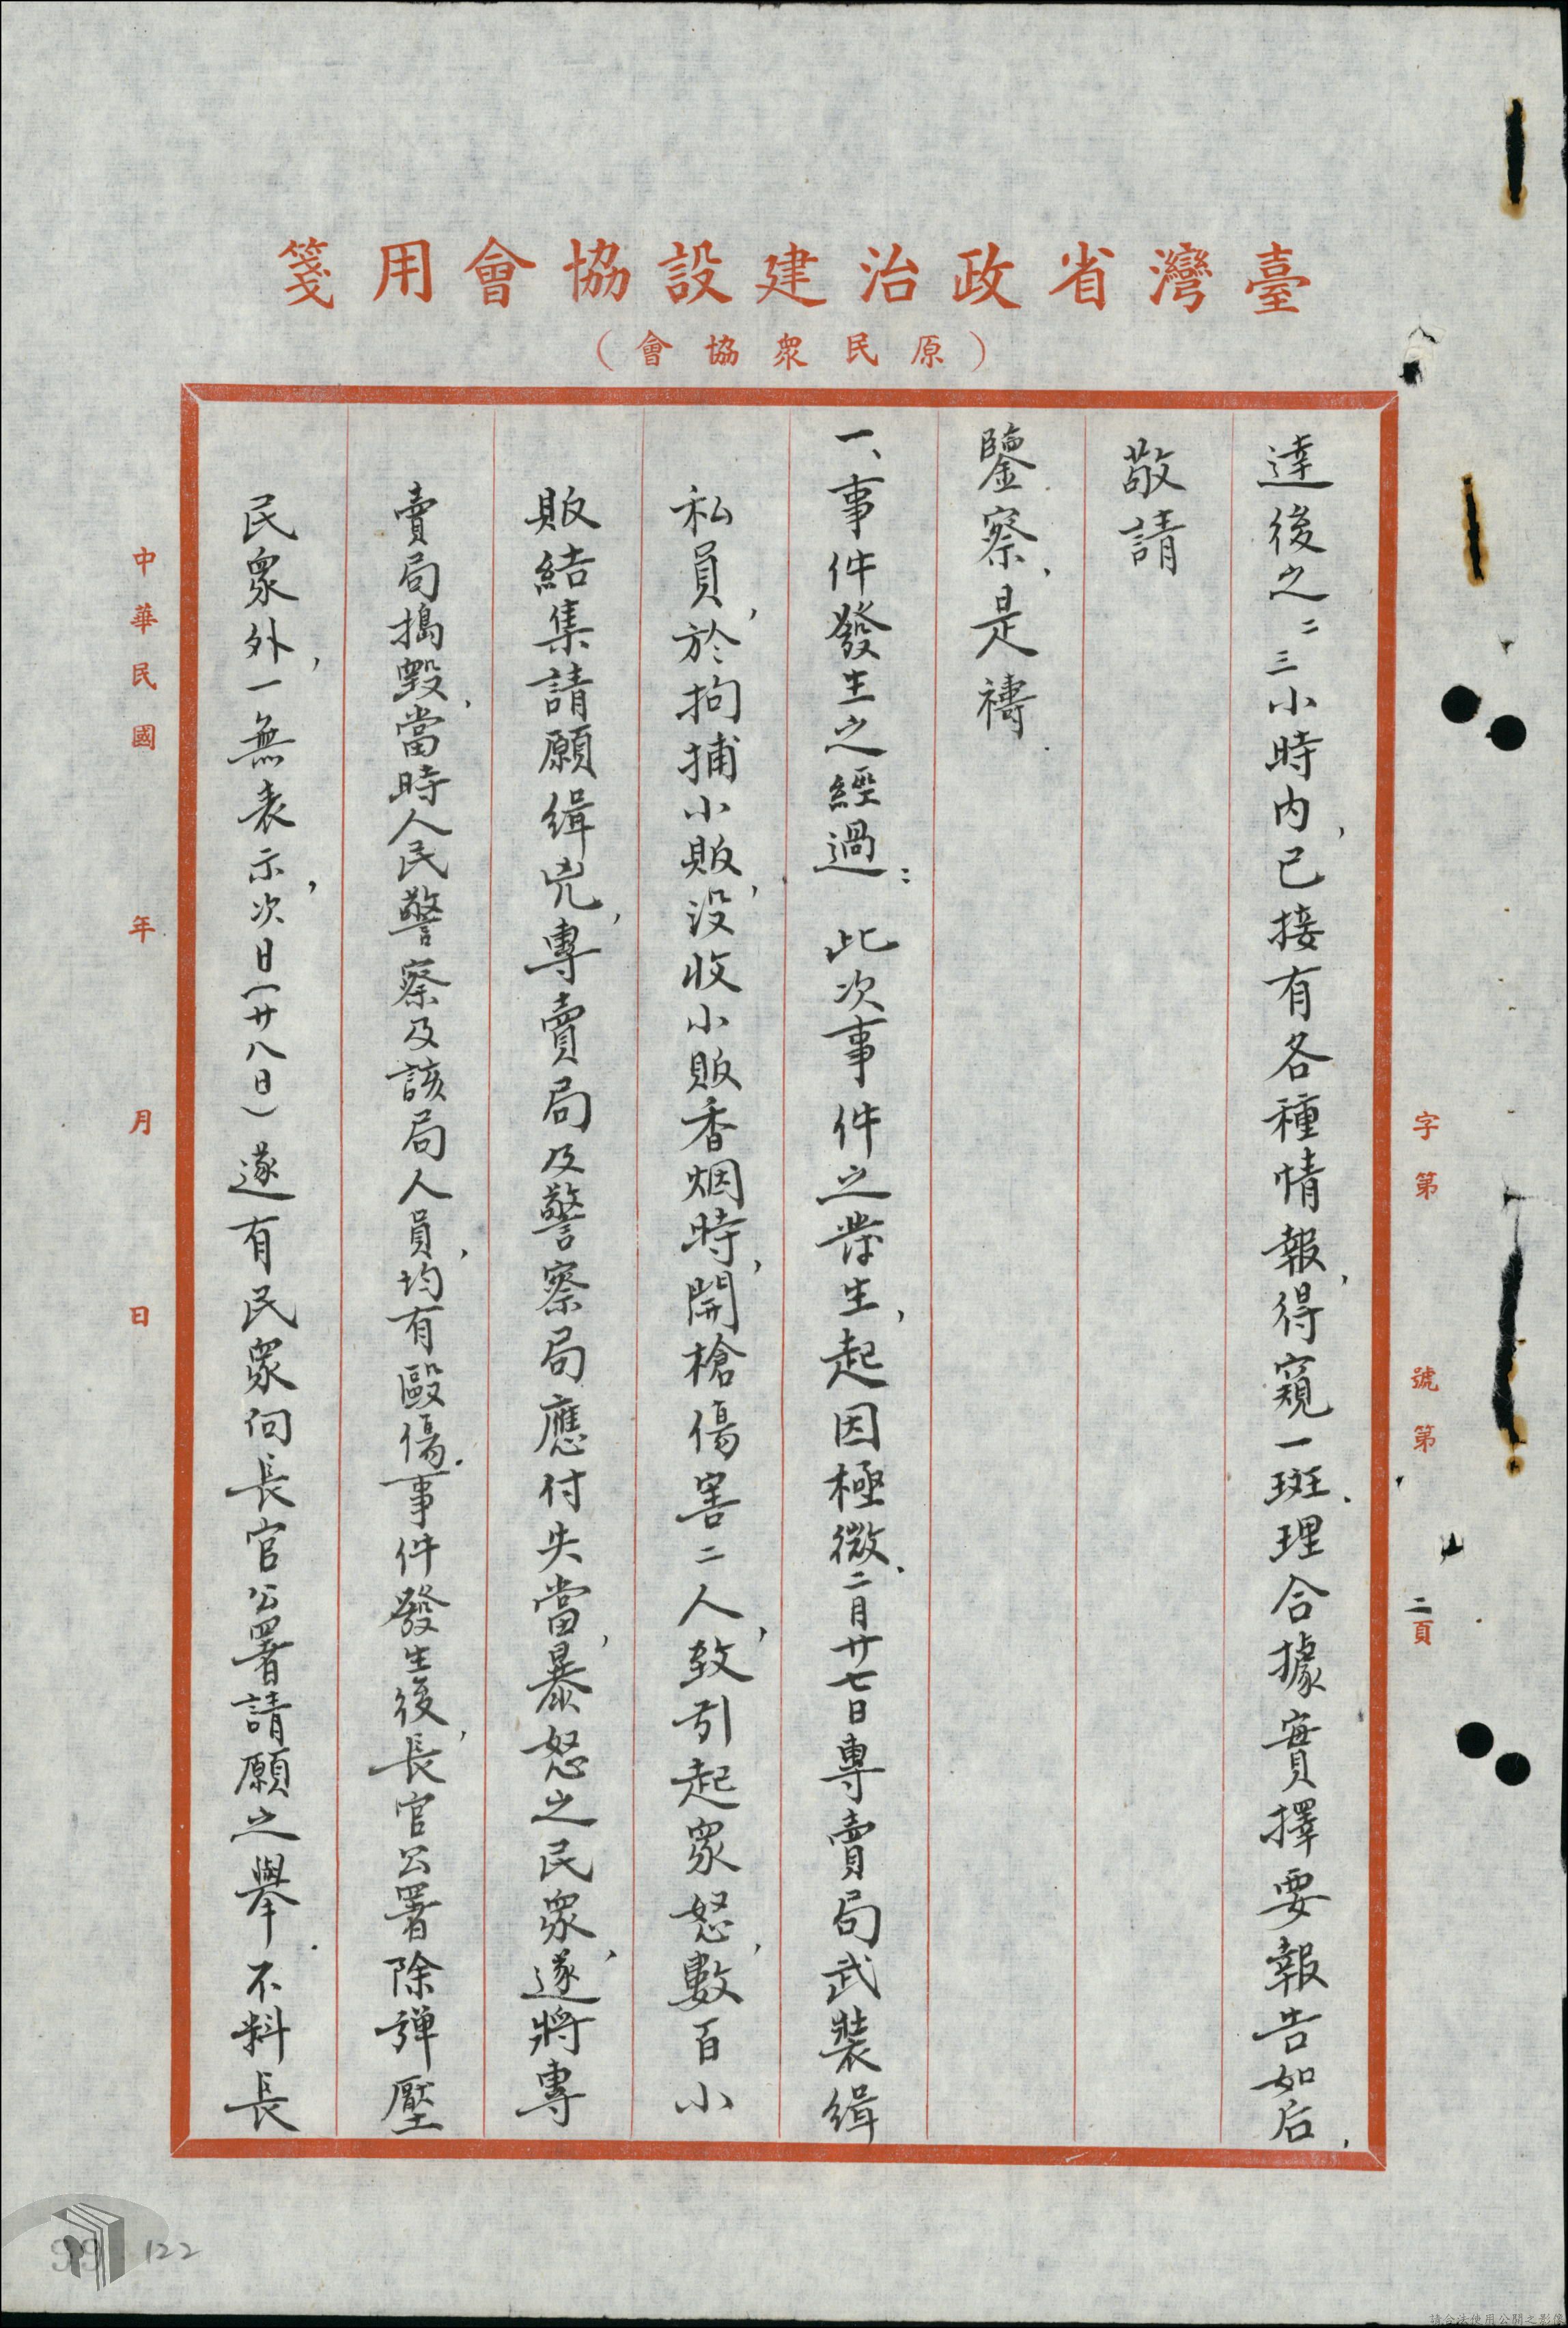 臺灣省政治建設協會用箋
(原民眾協會)
字第　號第二頁
達後之二三小時內，已接有各種情報，得窺一斑．理合據實擇要報告如后，
敬請
鑒察，是禱．
一、事件發生之經過：此次事件之發生，起因極微．二月廿七日專賣局武裝緝
私員，於拘捕小販，没收小販香烟時，開槍傷害二人，致引起眾怒，數百小
販結集請願緝兇，專賣局及警察局應付失當，暴怒之民眾，遂將專
賣局搗毀，當時人民警察及該局人員，均有毆傷．事件發生後，長官公署除彈壓
民眾外，一無表示，次日(廿八日)遂有民眾向長官公署請願之舉．不料長
中華民國　年　月　日
122
請合法使用公開之影像